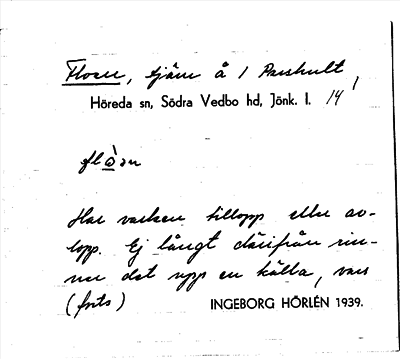 Flosen, tjärn å 1 Parshult,
Höreda sn, Södra Vedbo hd, Jönk. l. 14
Har varken tillopp eller av-
lopp. Ej långt därifrån rin-
ner det upp en källa, vars
(forts) INGEBORG HÖRLÉN 1939.